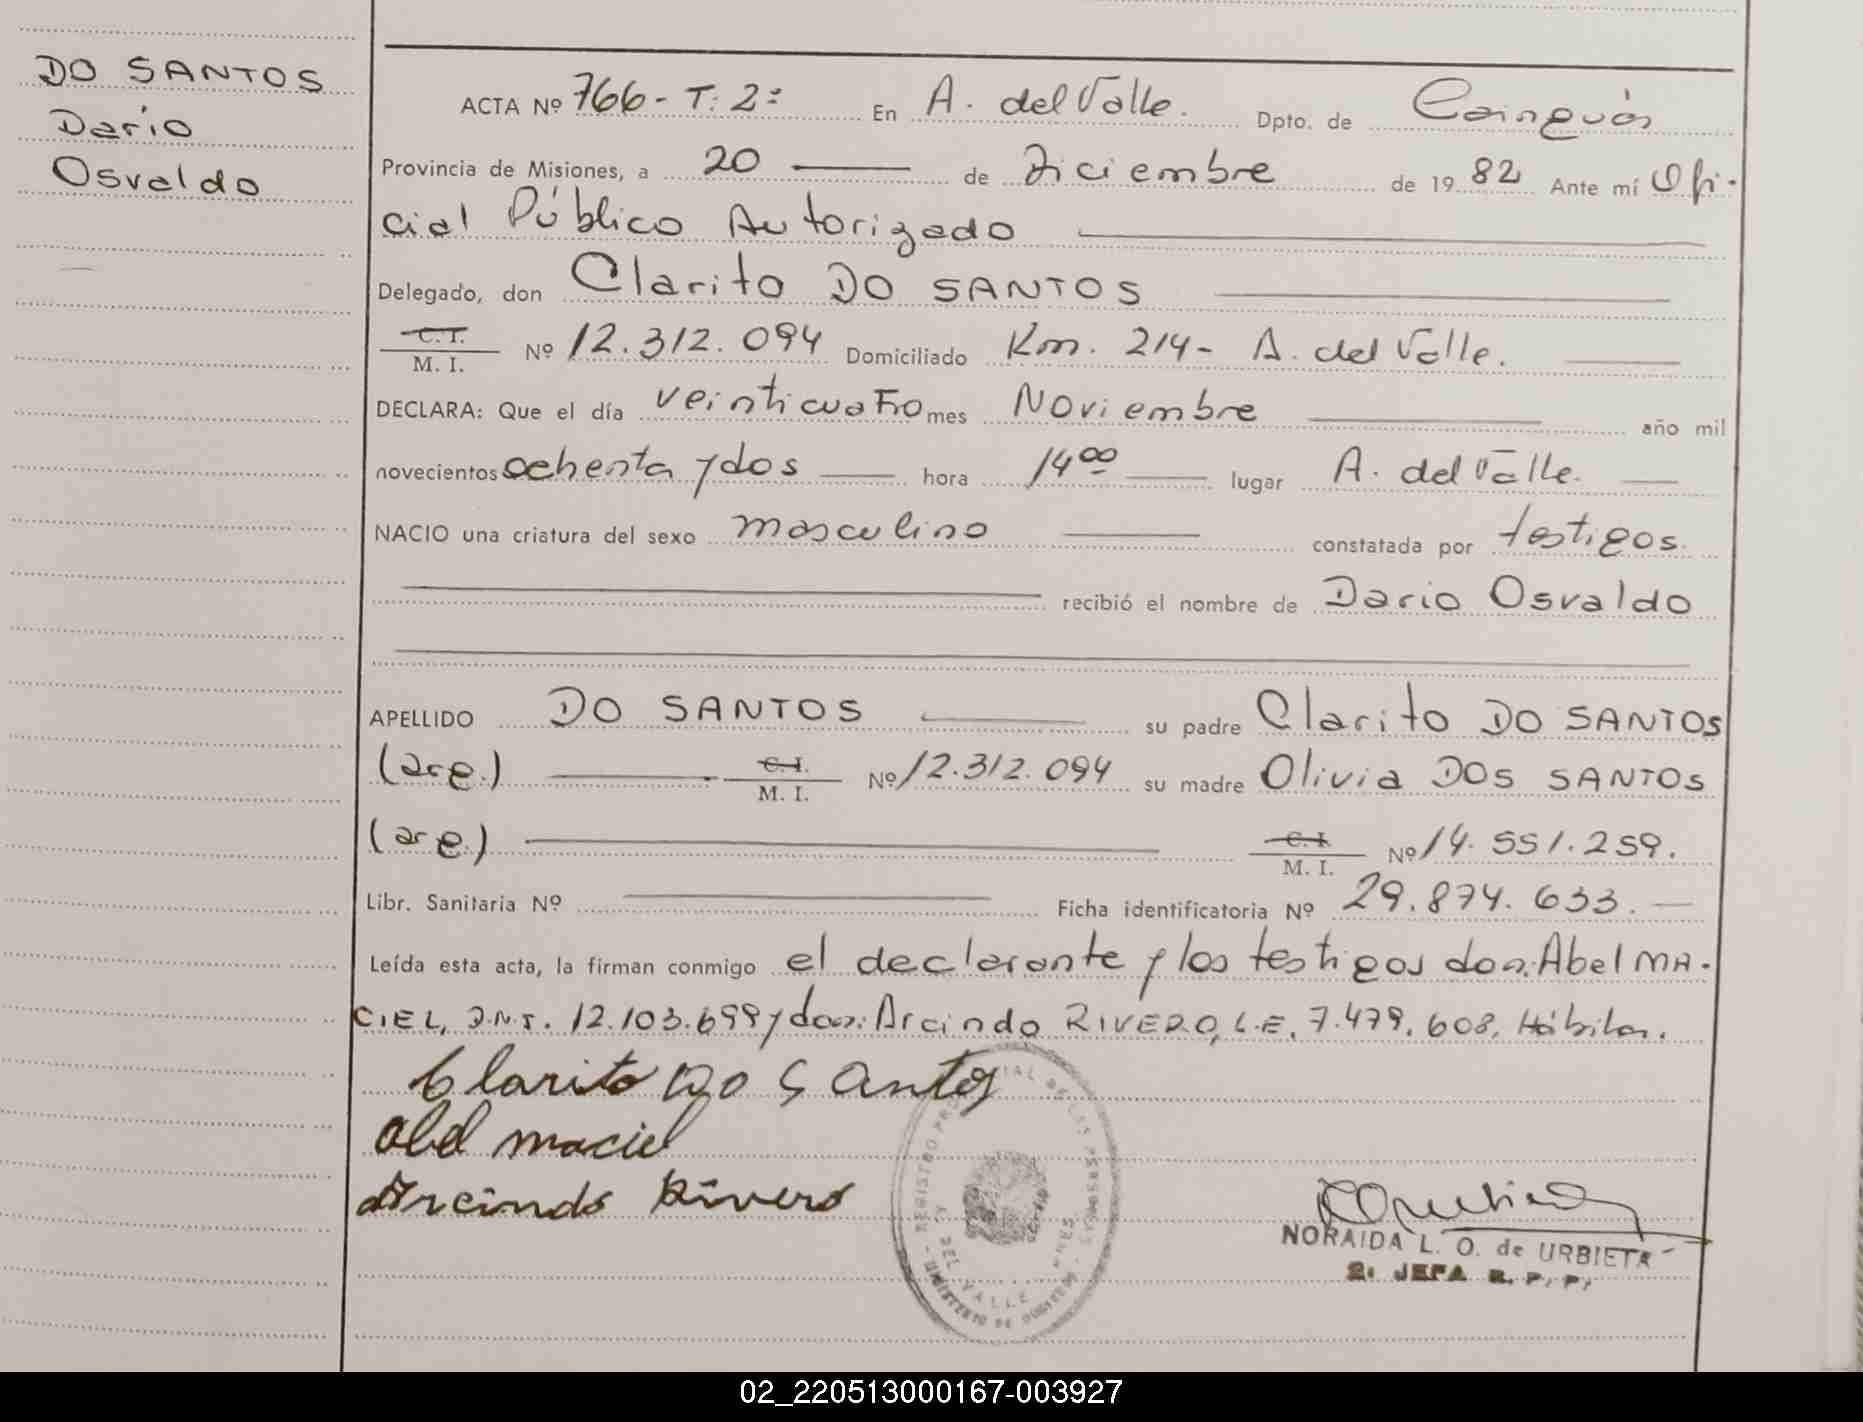 DO SANTOS
Dario
Osvaldo
ACTA Nº 766 - T: 2º En A. del Valle. Dpto. de Cainguás
Provincia de Misiones, a 20 de Diciembre de 1982 Ante mí Ofi-
cial Público Autorizado
Delegado, don Clarito DO SANTOS
C.I.
M. I. Nº 12.312.094 Domiciliado Km. 214 - A. del Valle.
DECLARA: Que el día veinticuatro mes Noviembre año mil
novecientos ochenta y dos hora 14 00 lugar A. del Valle.
NACIO una criatura del sexo masculino constatada por testigos.
recibió el nombre de Dario Osvaldo
APELLIDO DO SANTOS su padre Clarito DO SANTOS
(arg.) C.I. M. I. Nº 12.312.094 su madre Olivia DOS SANTOS
(arg.) C.I. M. I. Nº 14.551.259.
Libr. Sanitaria Nº Ficha identificatoria Nº 29.874.633.
Leída esta acta, la firman conmigo el declarante y los testigos don: Abel MA-
CIEL, D.N.I. 12.103.699 y don: Arcindo RIVERO, L.E. 7.479.608, Hábiles.
Clarito Do Santos
Abel maciel
Arcindo Rivero
NORAIDA L. O. de URBIETA
2: JEFA R. P. P.
DEL VALLE
02_220513000167-003927